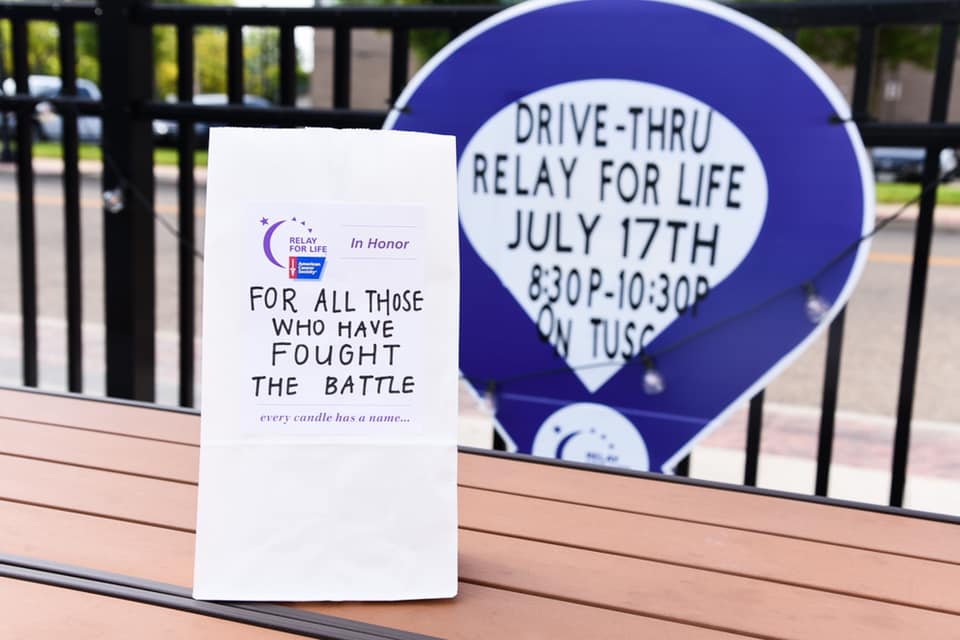 RELAY
FOR LIFE
American
Cancer
Society
In Honor
FOR ALL THOSE
WHO HAVE
FOUGHT
THE BATTLE
every candle has a name...
DRIVE-THRU
RELAY FOR LIFE
JULY 17TH
8:30P-10:30P
ON TUSC
RELAY